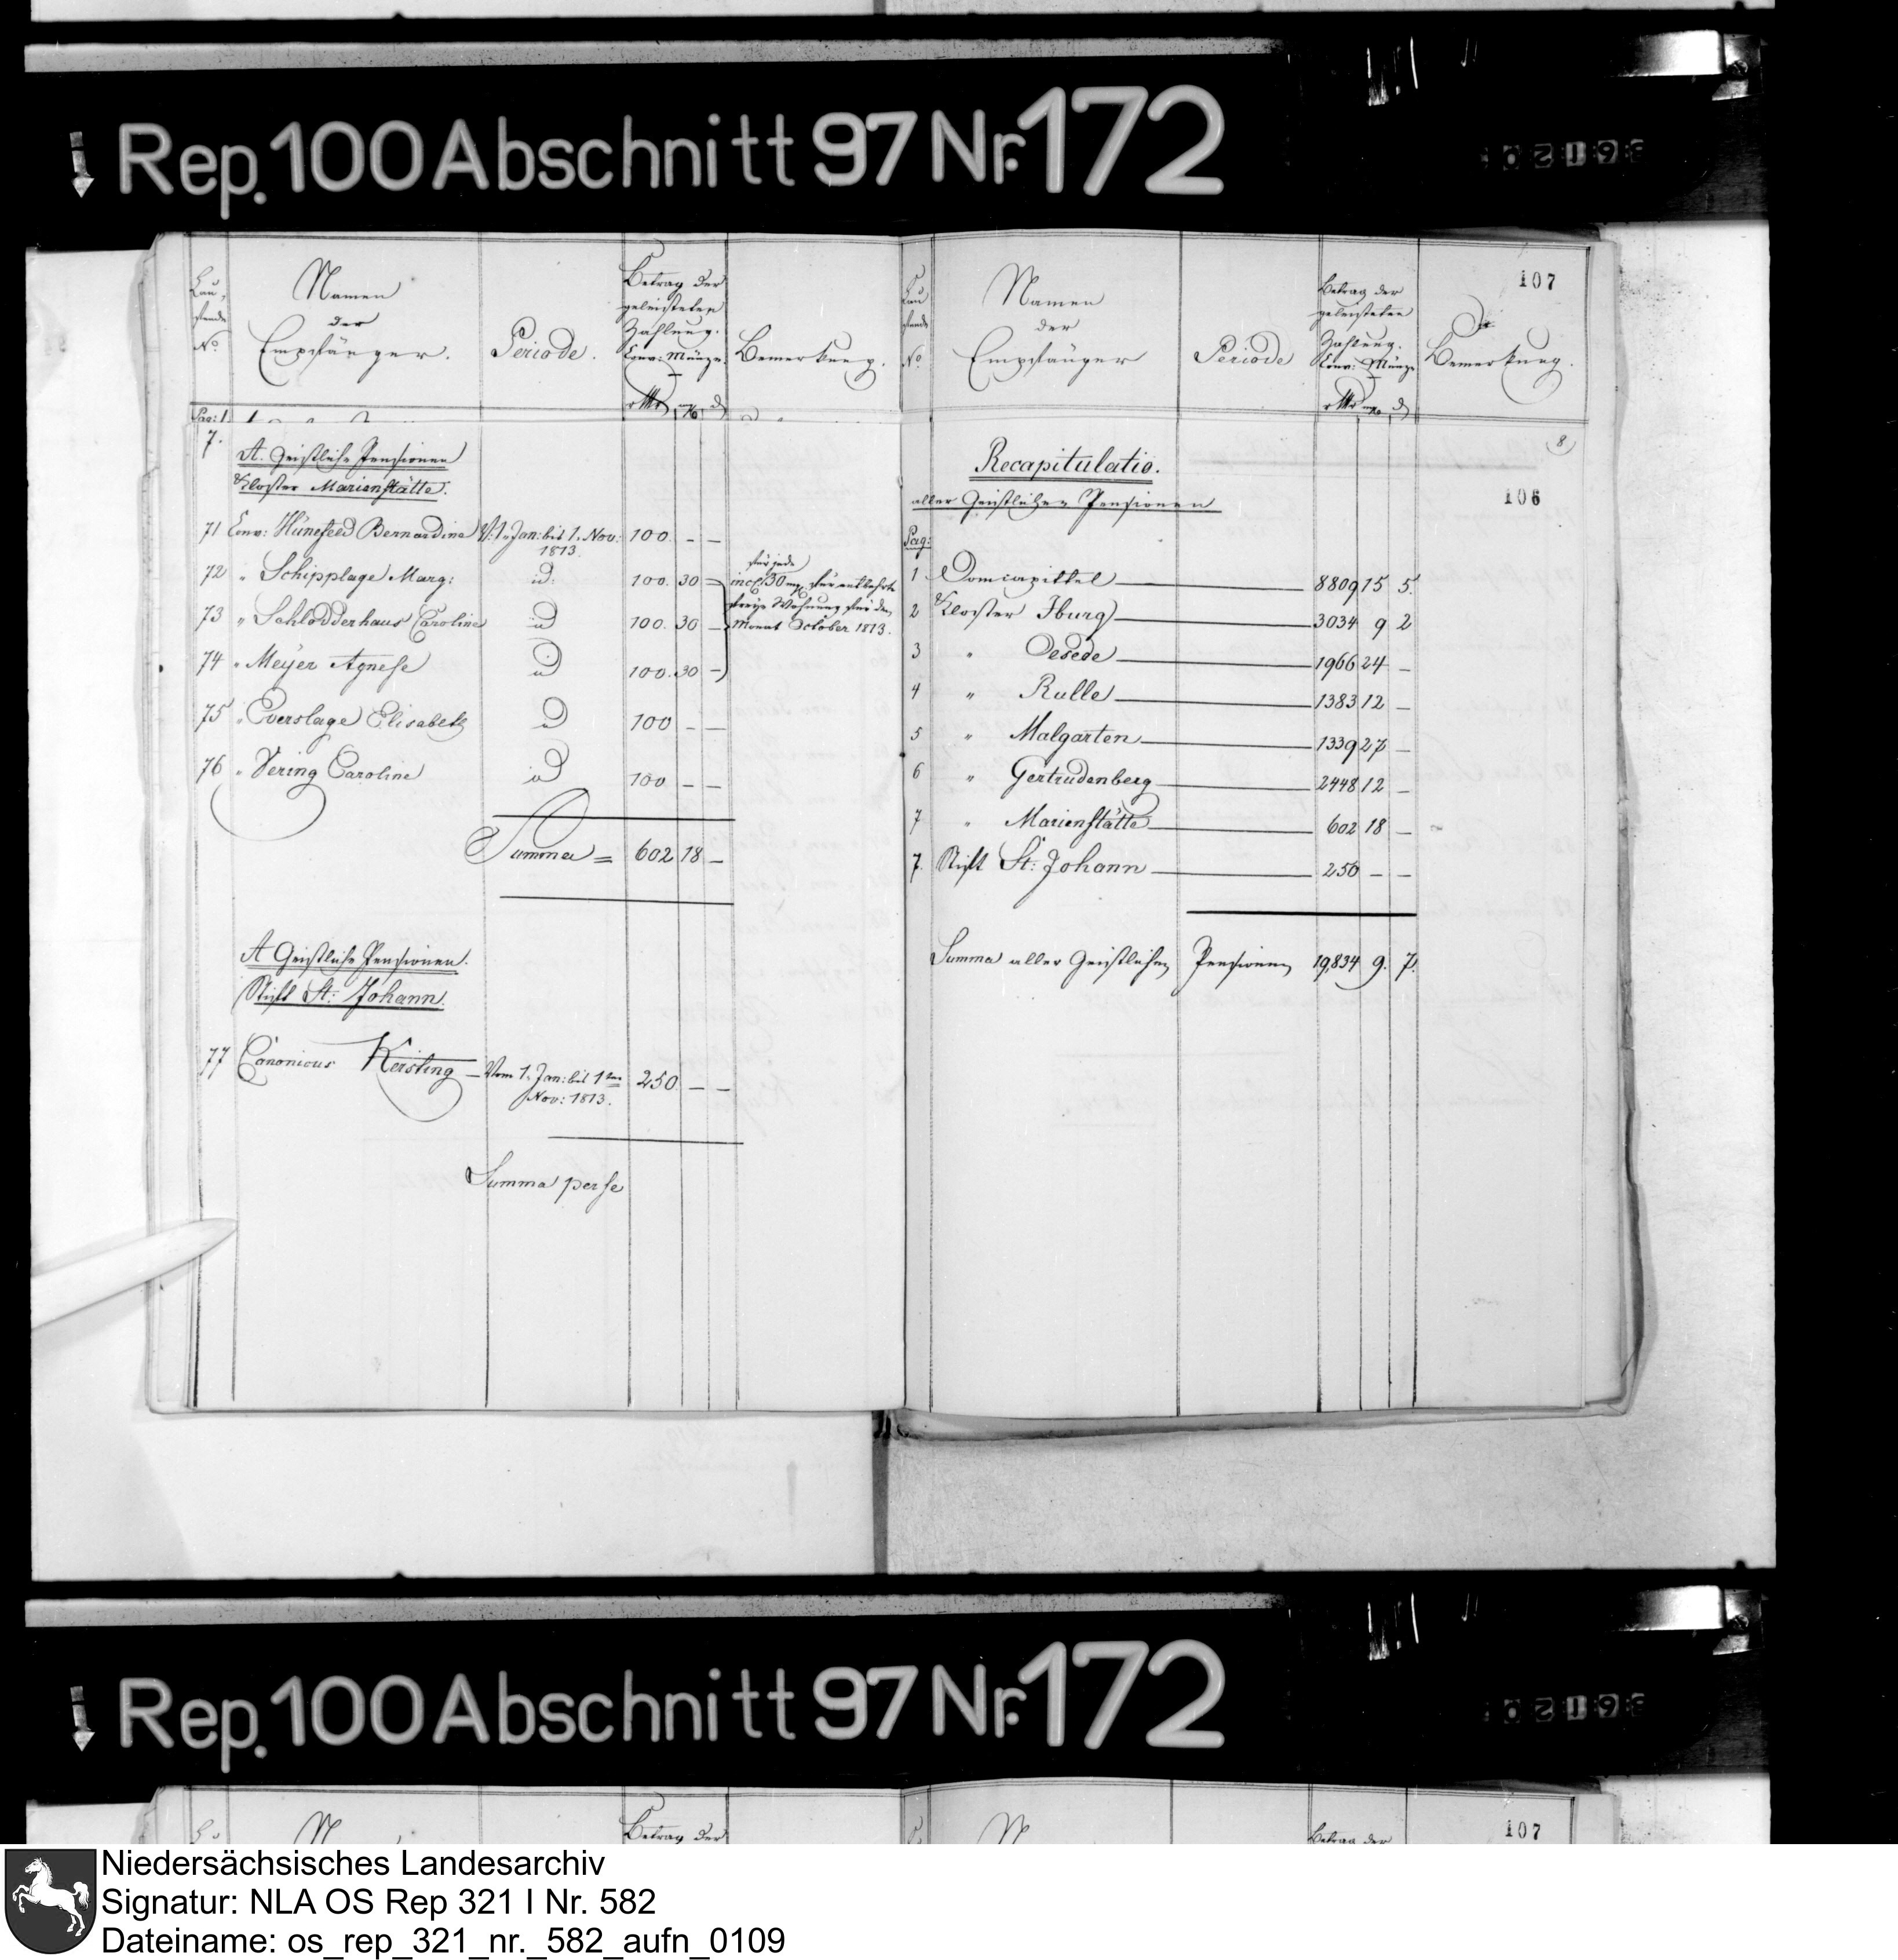 Rep. 100 Abschnitt 97 Nr. 172
Lau,
fende
No.
Namen
der
Empfänger.
Periode.
Betrag der
geleisteten
Zahlung.
Conv: Münze.
rthlr mg d
Bemerkung.
Pag: 1
7.
A. Geistliche Pensionen
Kloster Marienstätte.
71 Conv: Hünefeld Bernardine V. 1. Jan: bis 1. Nov: 1813. 100. - -
72 " Schipplage Marg: id: 100. 30 -
73 " Schlodderhaus Caroline id 100. 30 -
74 " Meÿer Agnese id 100. 30 -
für jede
incl: 30 mg für entbehrte
freye Wohnung für den
Monat October 1813.
75 " Everslage Elisabeth id 100 - -
76 " Vering Caroline id 100 - -
Summa = 602 18 -
A Geistliche Pensionen.
Stift St: Johann.
77 Canonicus Kersting - Vom 1. Jan: bis 1ten Nov: 1813. 250. - -
Summa per se
107
Lau
fende
No.
Namen
der
Empfänger
Periode
Betrag der
geleisteten
Zahlung.
Conv: Münze
rthlr mg d
Bemerkung.
8
Recapitulatio.
aller Geistlichen Pensionen
106
Pag:
1 Domcapittel 8809 15 5.
2 Kloster Iburg 3034 9 2
3 " Oesede 1966 24 -
4 " Rulle 1383 12 -
5 " Malgarten 1339 27 -
6 " Gertrudenberg 2448 12 -
7 " Marienstätte 602 18 -
7. Stift St: Johann 250 - -
Summa aller Geistlichen Pensionen 19,834 9. 7.
Rep. 100 Abschnitt 97 Nr. 172
Betrag der
Betrag der
107
Niedersächsisches Landesarchiv
Signatur: NLA OS Rep 321 I Nr. 582
Dateiname: os_rep_321_nr._582_aufn_0109